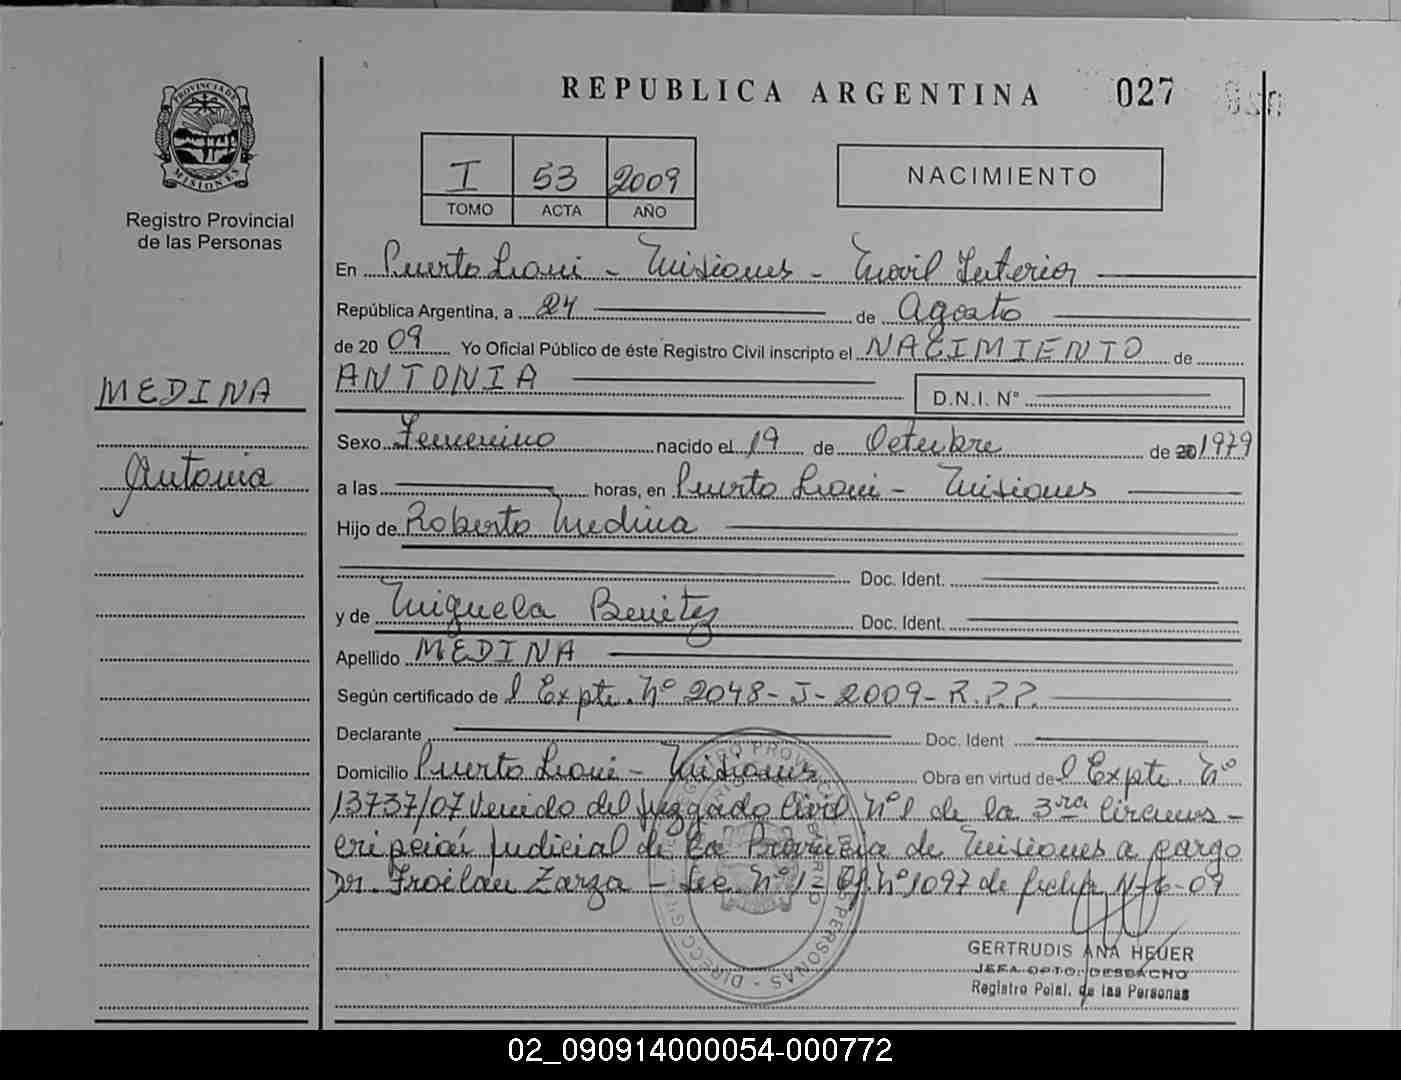 REPUBLICA ARGENTINA 027
PROVINCIA DE MISIONES
Registro Provincial
de las Personas
I 53 2009
TOMO ACTA AÑO
NACIMIENTO
En Puerto Leoni - Misiones - Movil Interior
República Argentina, a 24 de Agosto
de 20 09 Yo Oficial Público de éste Registro Civil inscripto el NACIMIENTO de
ANTONIA D.N.I. N°
MEDINA
Antonia
Sexo Femenino nacido el 19 de Octubre de 20 1979
a las horas, en Puerto Leoni - Misiones
Hijo de Roberto Medina
Doc. Ident.
y de Miguela Benitez Doc. Ident.
Apellido MEDINA
Según certificado de l Expte. Nº 2048-J-2009-R.P.P.
Declarante Doc. Ident
Domicilio Puerto Leoni - Misiones Obra en virtud de l Expte. Nº
13737/07 Venido del Juzgado Civil Nº 1 de la 3ra Circuns-
cripción Judicial de la Provincia de Misiones a cargo
Dr. Froilan Zarza - Sec Nº 1 - Of. Nº 1097 de fecha
GERTRUDIS ANA HEUER
JEFA DPTO. DESPACHO
Registro Pcial. de las Personas
02_090914000054-000772